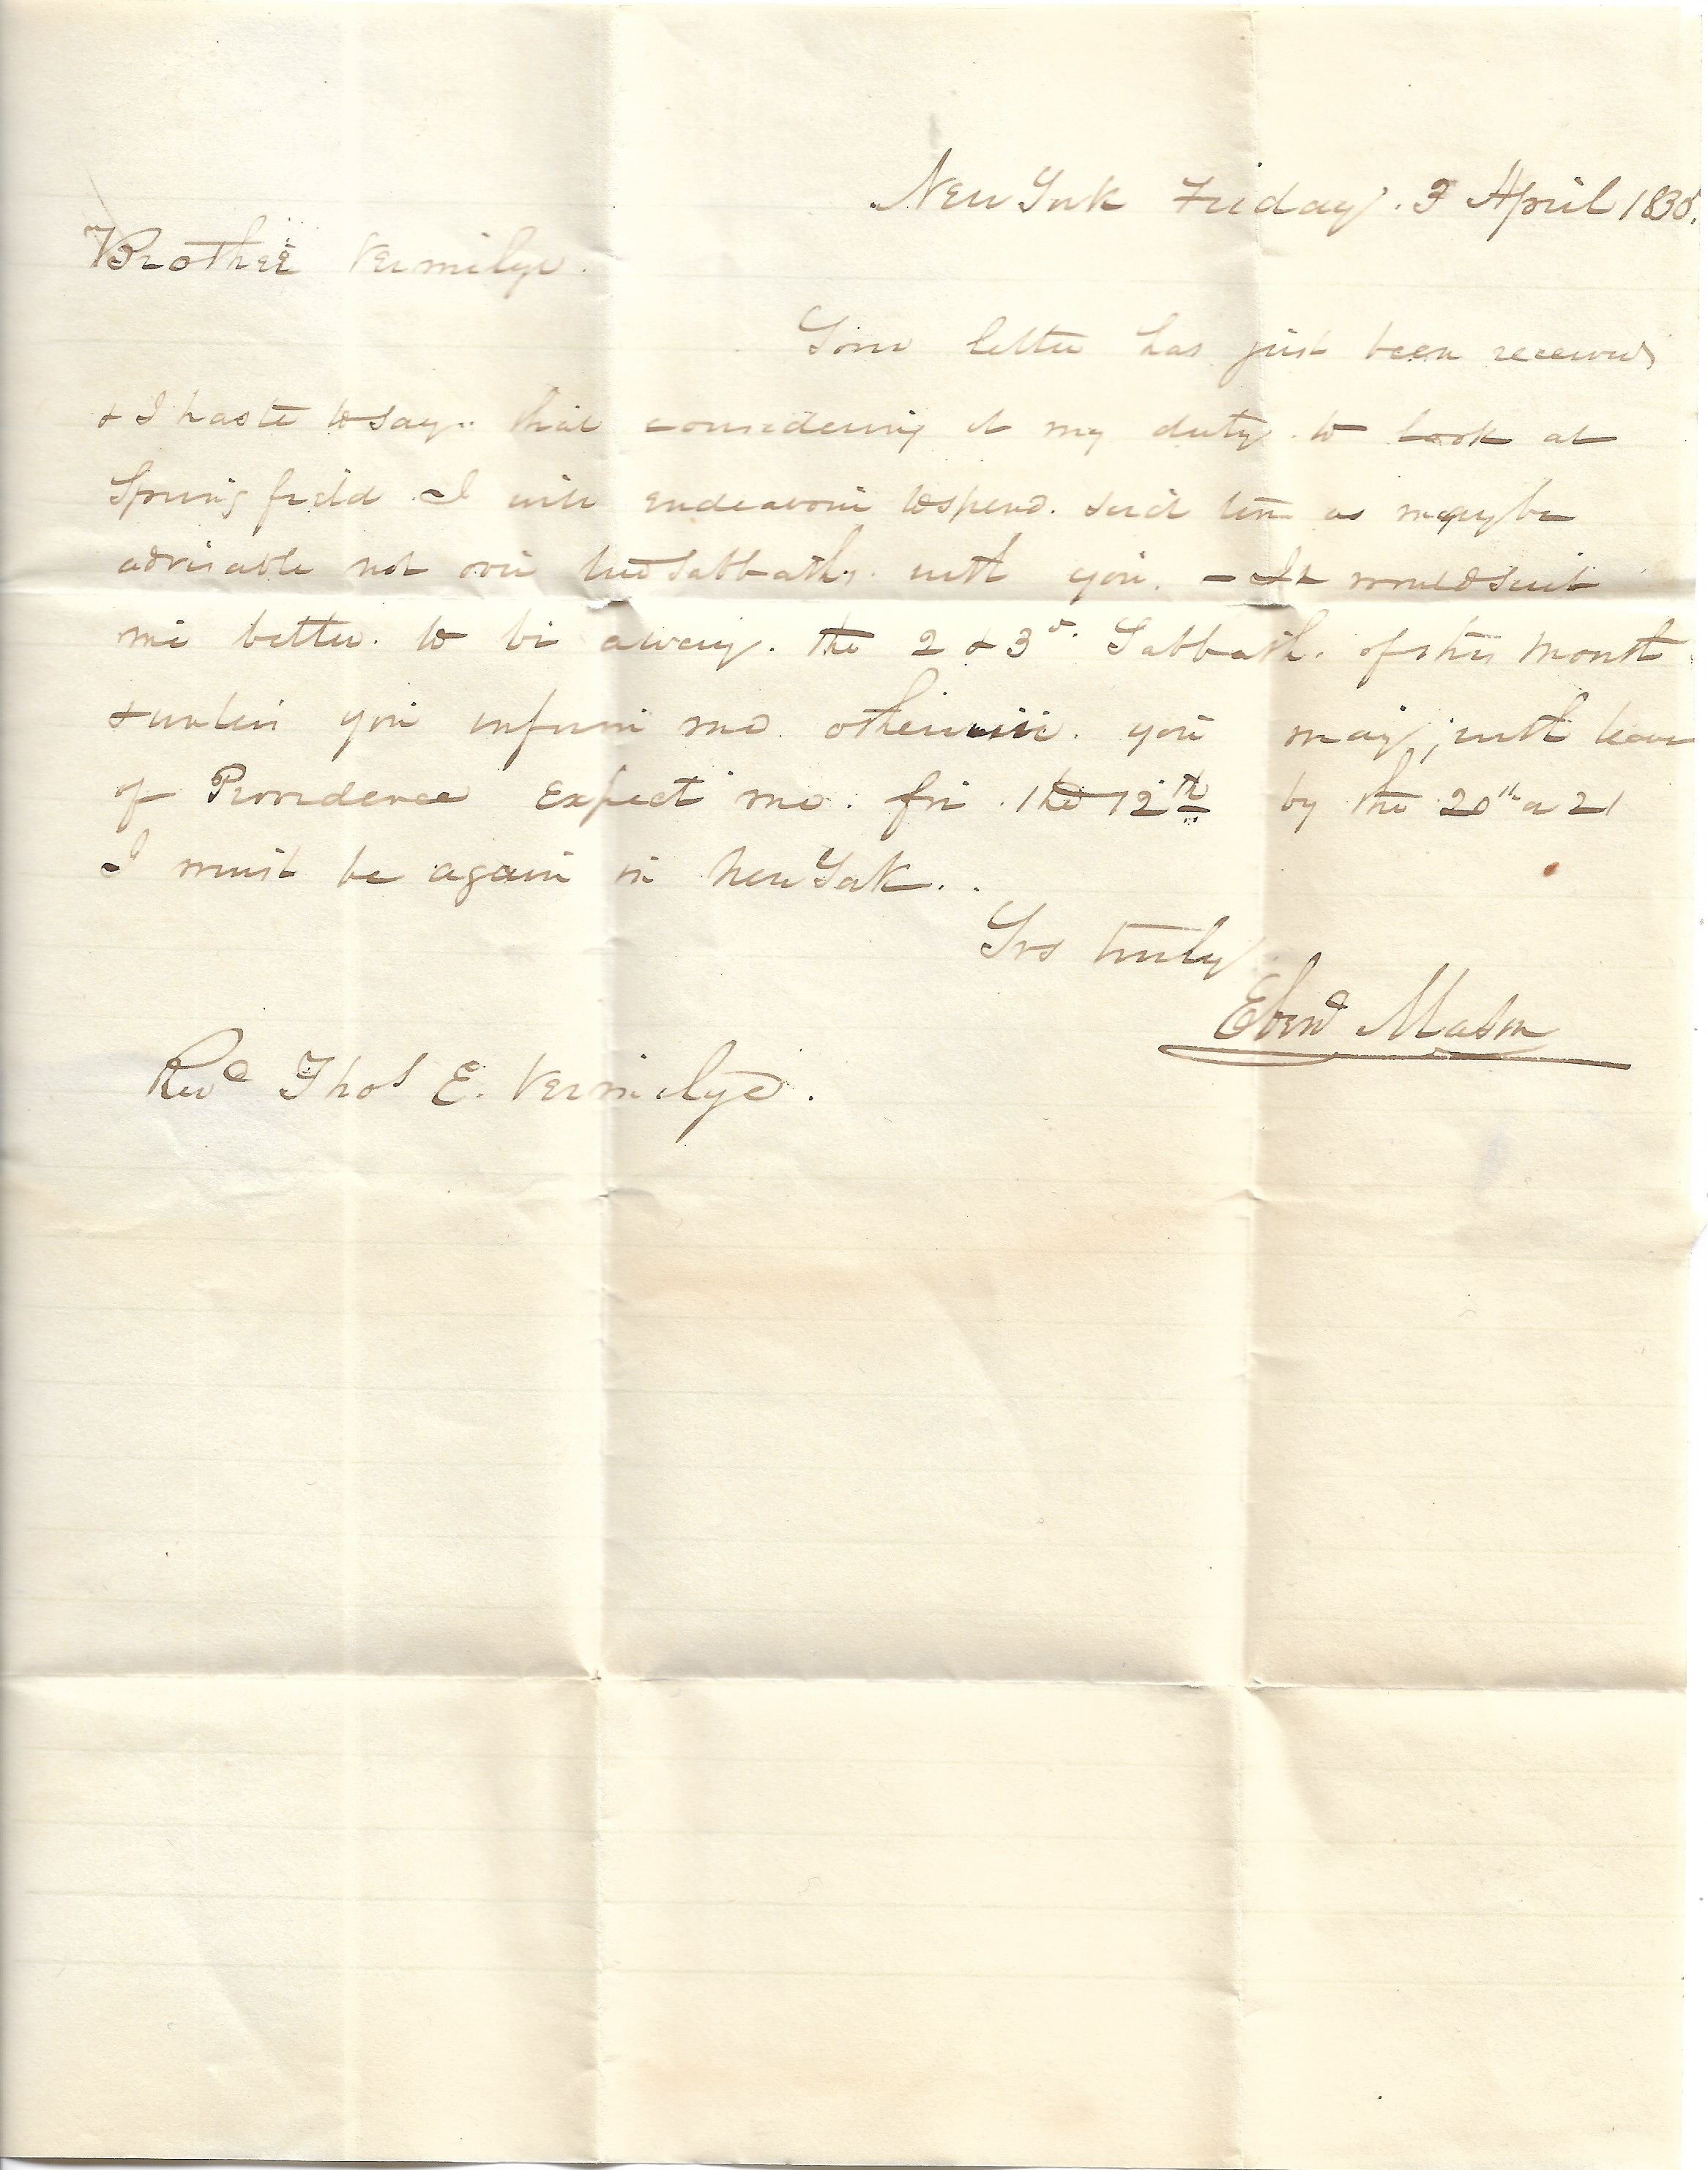 New York Friday. 3 April 1835.
Brother Vermilye.
Your letter has just been received
& I haste to say. that considering it my duty. to look at
Springfield I will endeavour to spend. such time as may be
advisable not over two Sabbaths. with you. – It would suit
me better. to be away. the 2 & 3d. Sabbath. of this month
& unless you inform me otherwise. you may, with leave
of Providence expect me. for the 12th by the 20th or 21
I must be again in New York..
Yrs truly
Ebenr Mason
Revd Thos E. Vermilye.